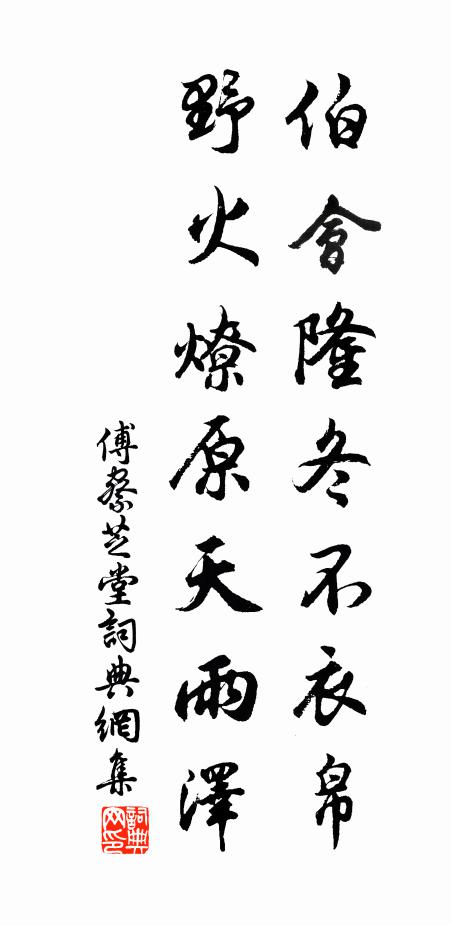 伯會隆冬不衣帛
野火燎原天雨澤
傅蔡芝堂詞典網集
詞典網印